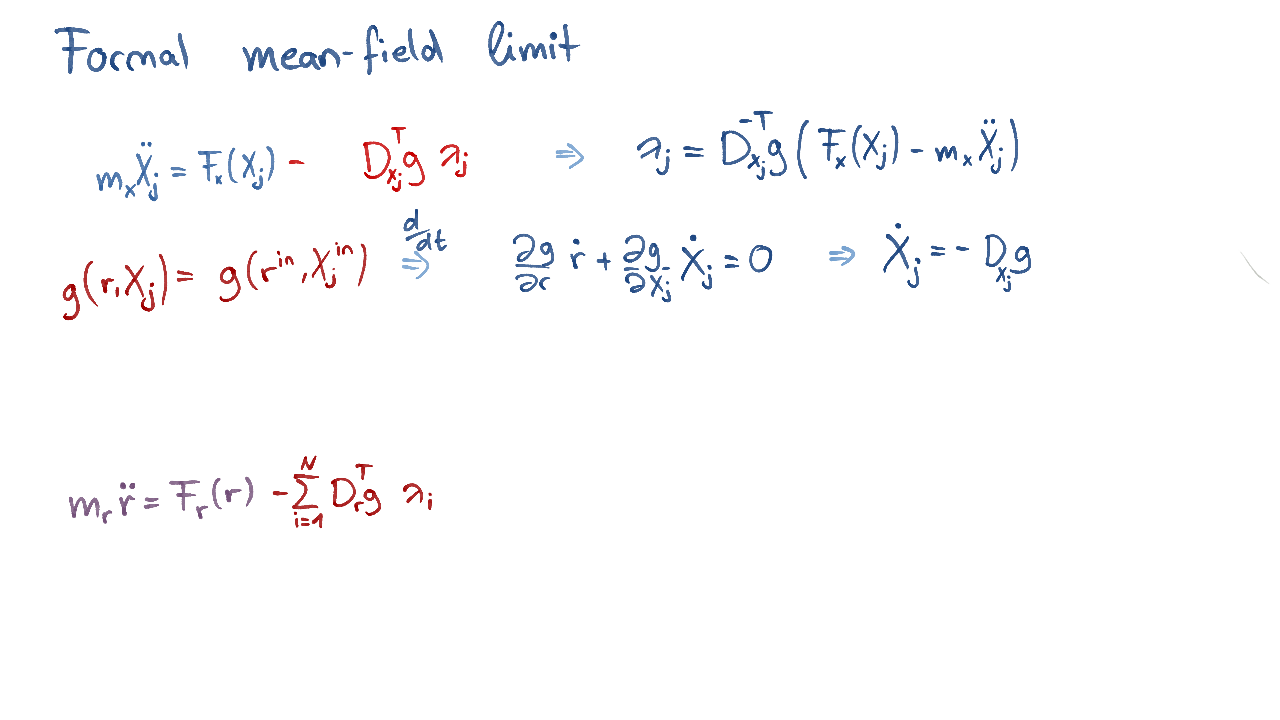 Formal mean-field limit
m_x Ẍ_j = F_x(X_j) − D_{x_j}^T g λ_j ⇒ λ_j = D_{x_j}^{-T} g (F_x(X_j) − m_x Ẍ_j)
g(r, X_j) = g(r^{in}, X_j^{in}) d/dt ⇒ ∂g/∂r ṙ + ∂g/∂X_j Ẋ_j = 0 ⇒ Ẋ_j = − D_{x_j} g
m_r r̈ = F_r(r) − ∑_{i=1}^N D_r^T g λ_i